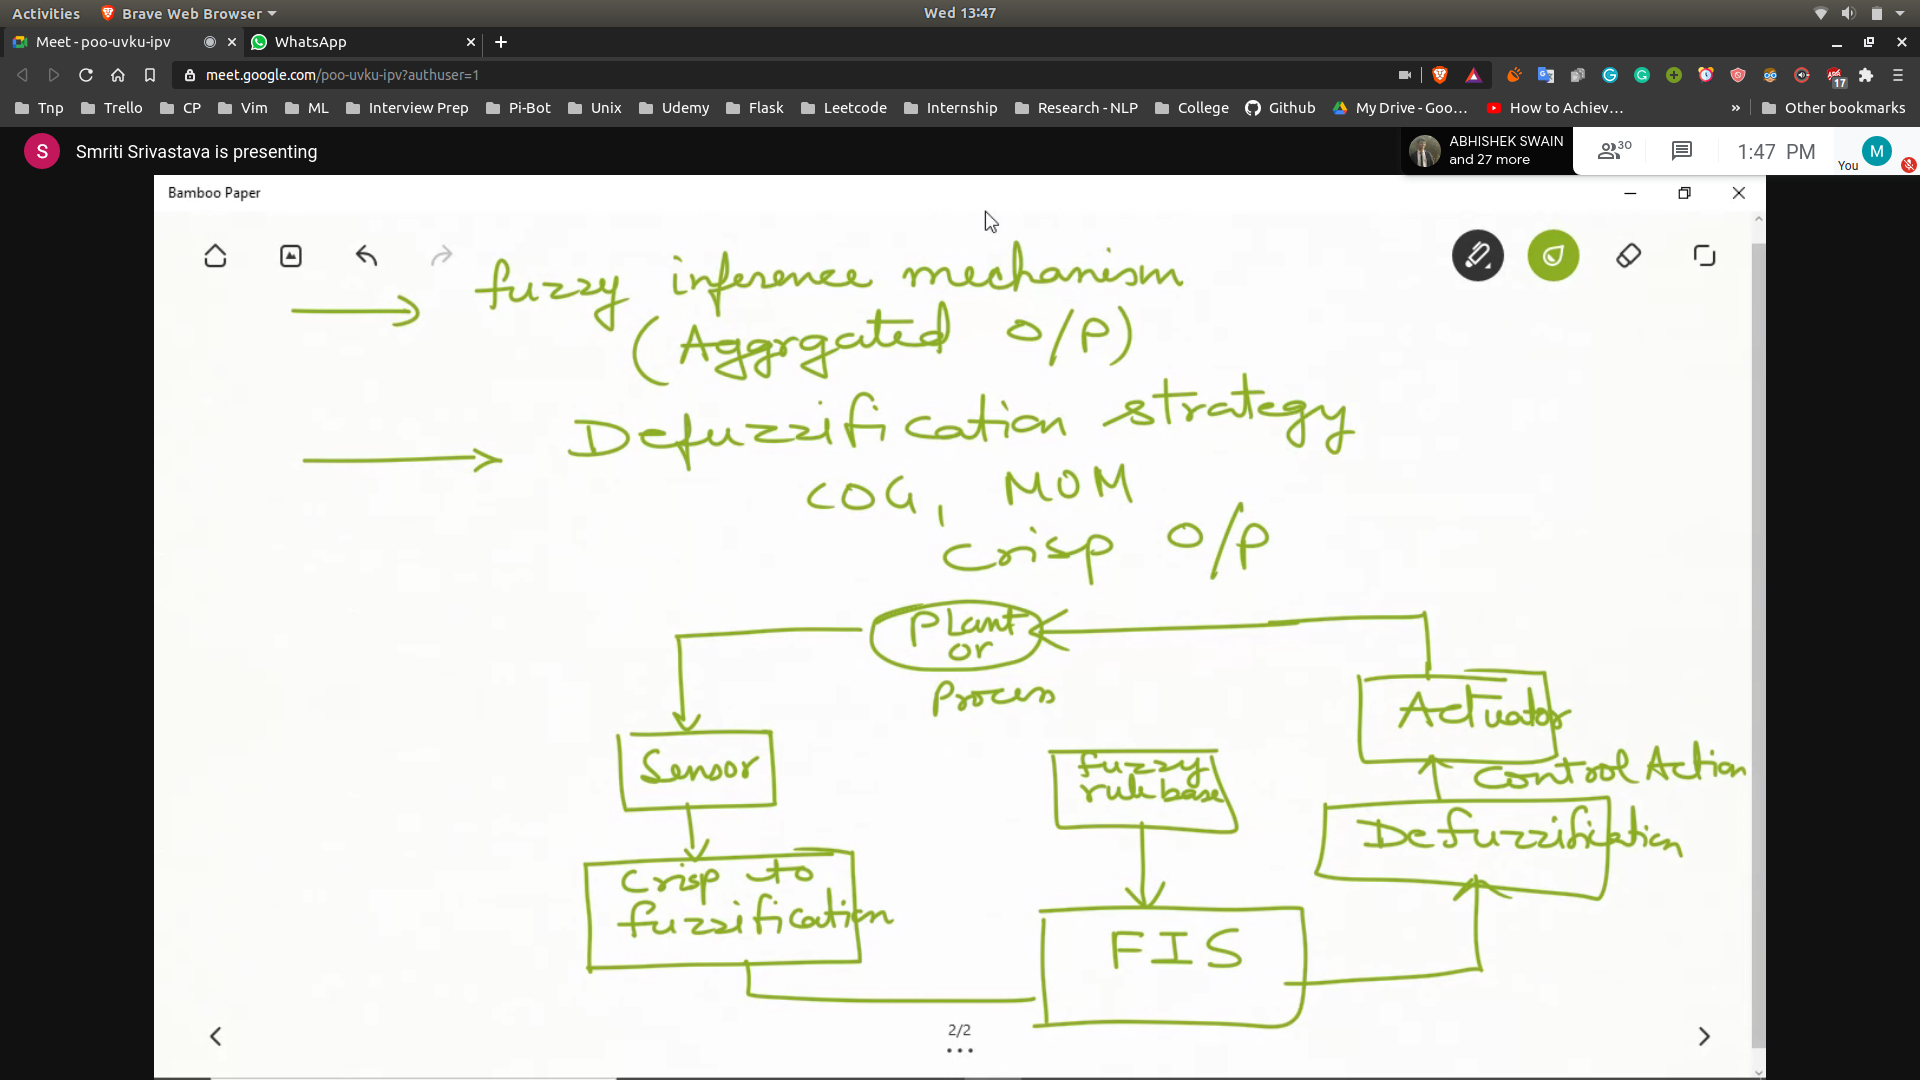 Activities Brave Web Browser Wed 13:47
Meet - poo-uvku-ipv WhatsApp
meet.google.com/poo-uvku-ipv?authuser=1 17
Tnp Trello CP Vim ML Interview Prep Pi-Bot Unix Udemy Flask Leetcode Internship Research - NLP College Github My Drive - Goo... How to Achiev... » Other bookmarks
S Smriti Srivastava is presenting ABHISHEK SWAIN and 27 more 30 1:47 PM You M
Bamboo Paper
fuzzy inference mechanism
(Aggrgated O/P)
Defuzzification strategy
COG, MOM
Crisp O/P
Plant
or
Process
Actuator
Control Action
Sensor
fuzzy
rule base
Defuzzification
Crisp to
fuzzification
FIS
2/2